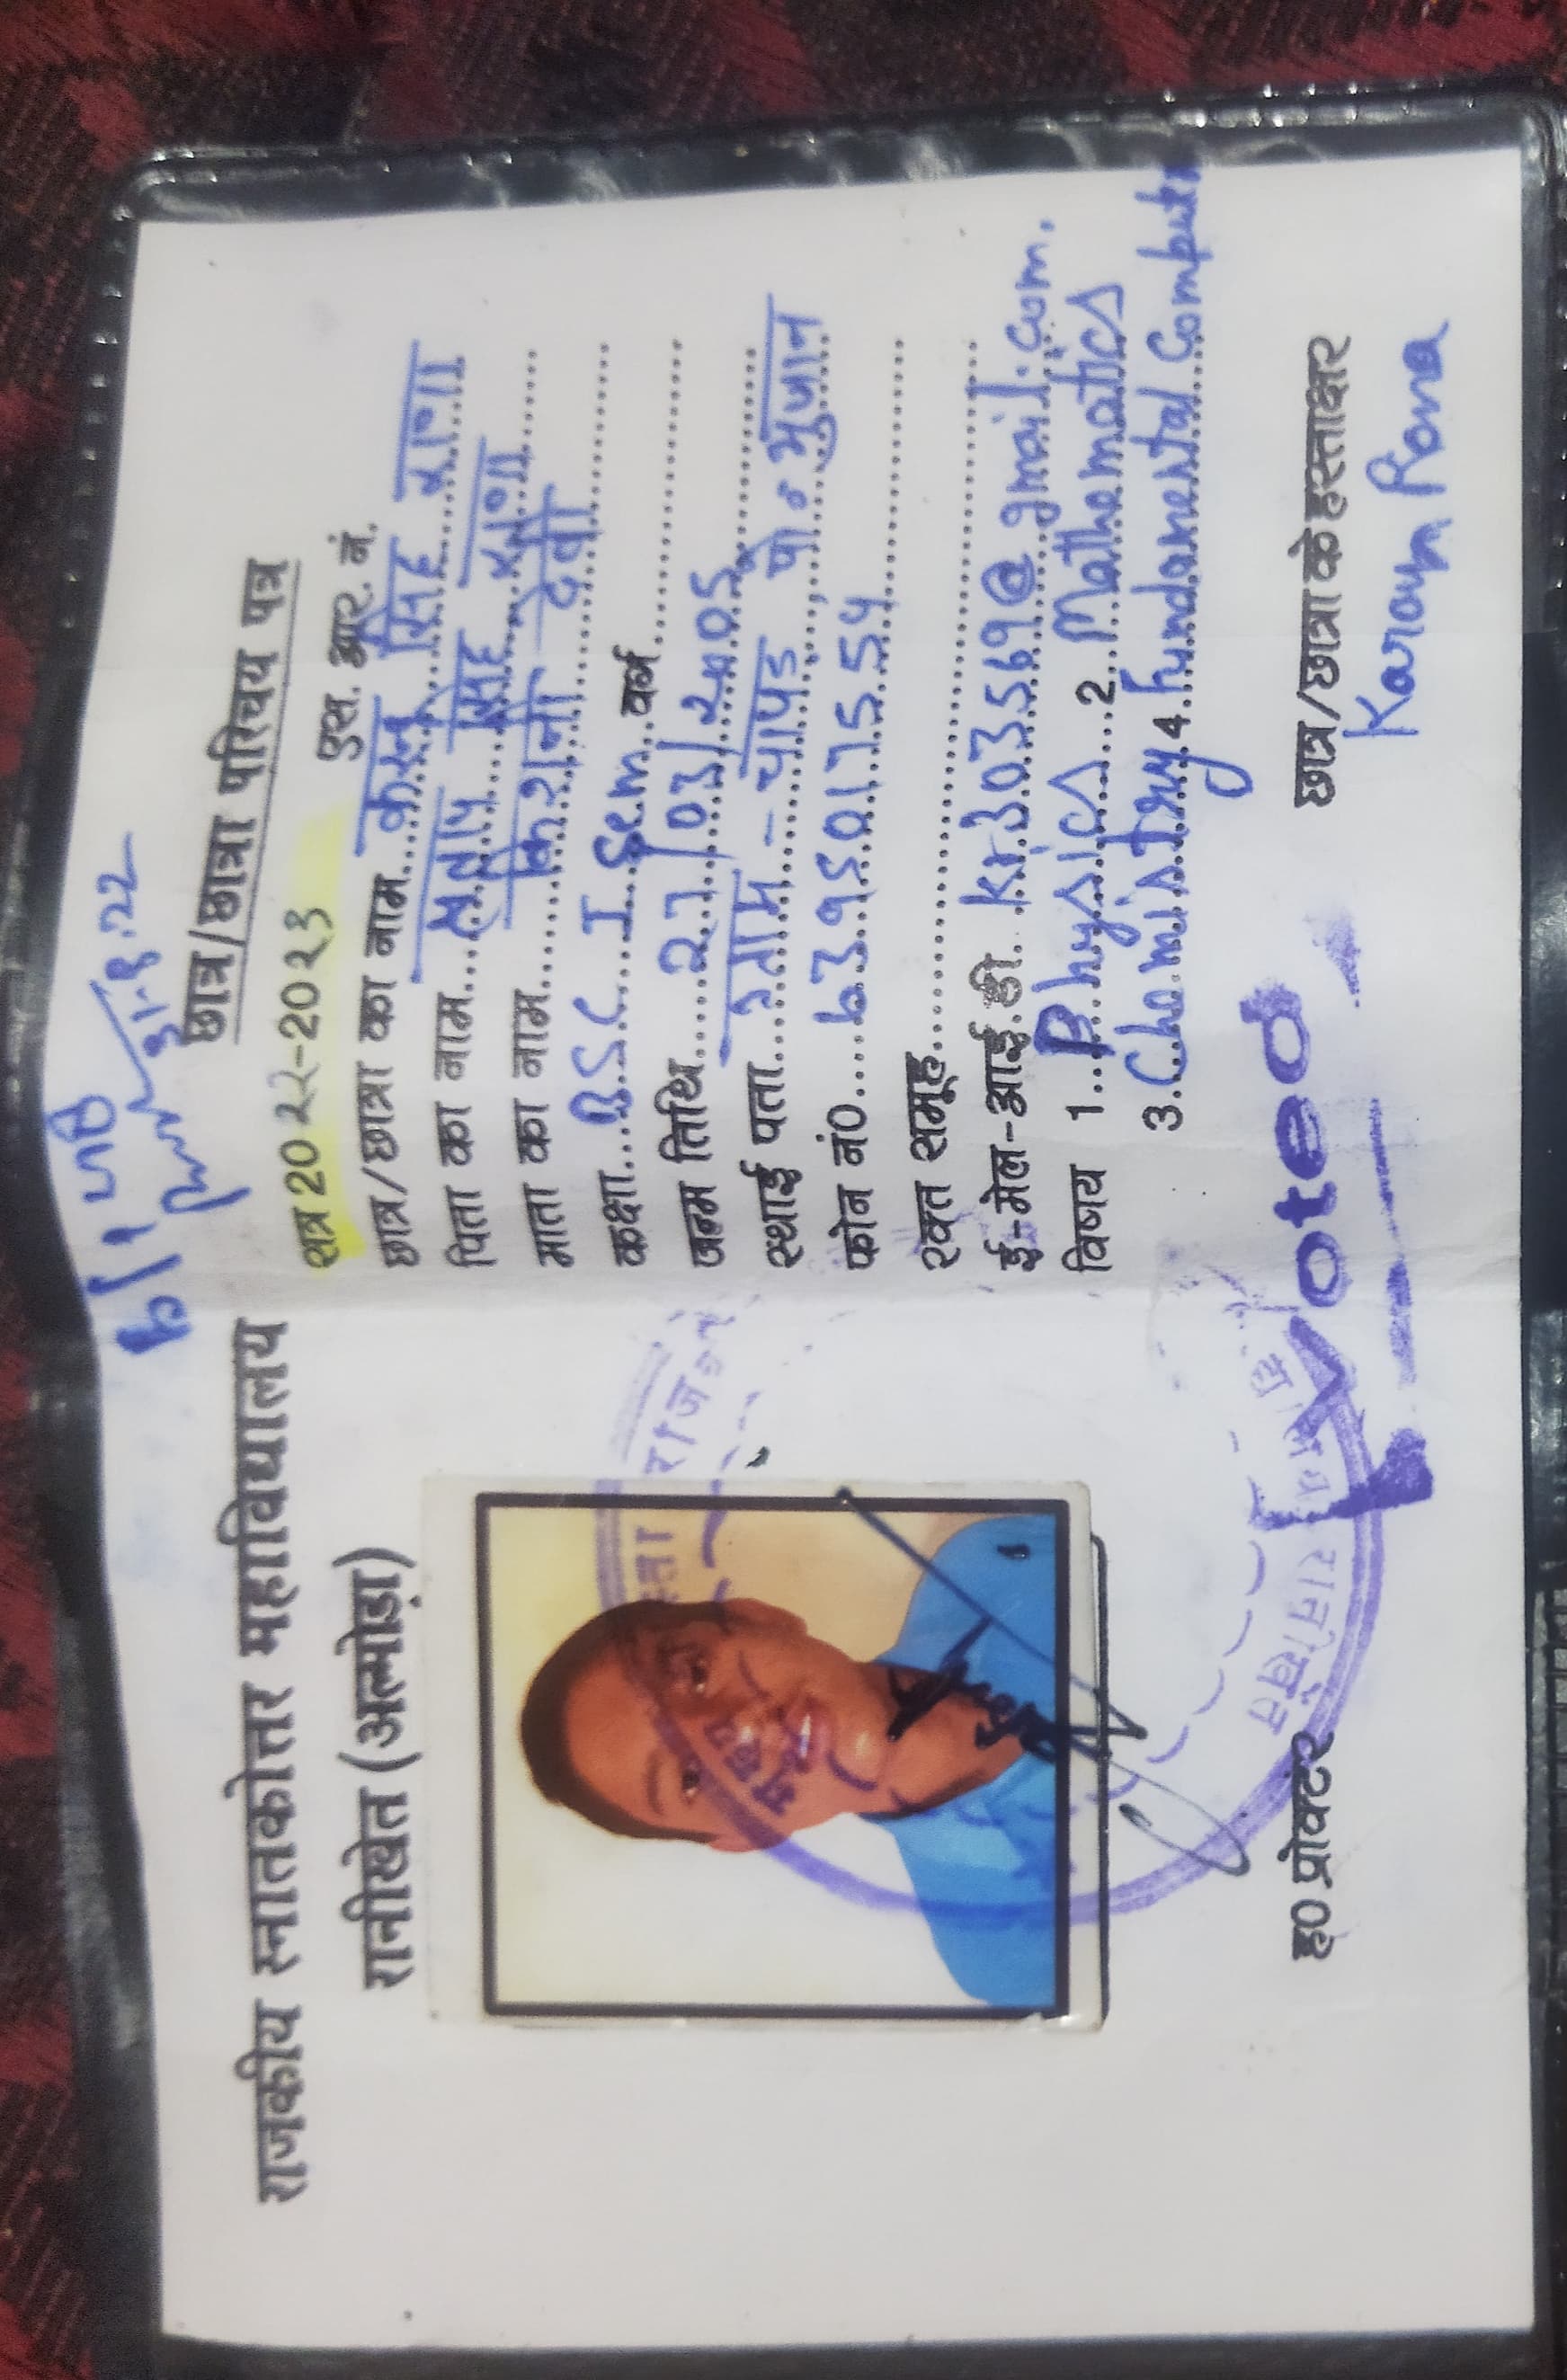 राजकीय स्नातकोत्तर महाविद्यालय
रानीखेत (अल्मोड़ा)
ह0 प्रोक्टर
31.8.22
छात्र/छात्रा परिचय पत्र
सत्र 2022-2023 एस. आर. नं.
छात्र/छात्रा का नाम... करन सिंह राणा
पिता का नाम... प्रताप सिंह राणा
माता का नाम... किशनी देवी
कक्षा... B.S.C. I Sem वर्ष
जन्म तिथि... 27/03/2005
स्थाई पता... ग्राम - चापड पो० भुजान
फोन नं0... 6395017554
रक्त समूह
ई-मेल-आई.डी. kr303569@gmail.com.
विषय 1. Physics 2. Mathematics
3. Chemistry 4. Fundamental Computer
Voted
छात्र/छात्रा के हस्ताक्षर
Karan Rana